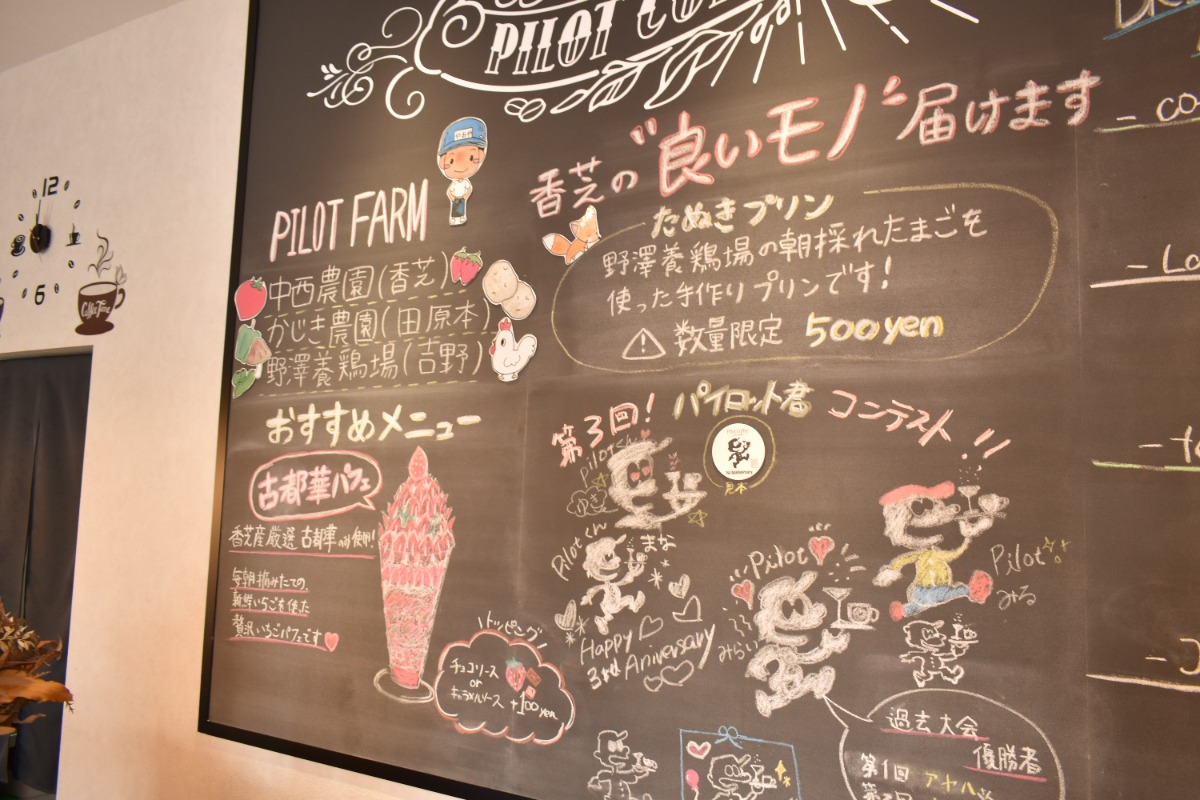 PILOT
香芝の"良いモノ"届けます
やおや
PILOT FARM
中西農園(香芝)
かじき農園(田原本)
野澤養鶏場(吉野)
たぬきプリン
野澤養鶏場の朝採れたまごを
使った手作りプリンです!
数量限定 500yen
おすすめメニュー
古都華パフェ
香芝産厳選古都華のみ使用!
毎朝摘みたての
新鮮いちごを使った
贅沢いちごパフェです
トッピング
チョコソース
or
キャラメルソース +100yen
第3回! パイロット君 コンテスト!!
見本
Pilotくん
ゆき
Pilotくん
まな
Happy
3rd Aniversary
Pilot
みらい
Pilot
みる
過去大会
優勝者
第1回 アヤハ
12
6
Coffee Time
- CO
- La
- J